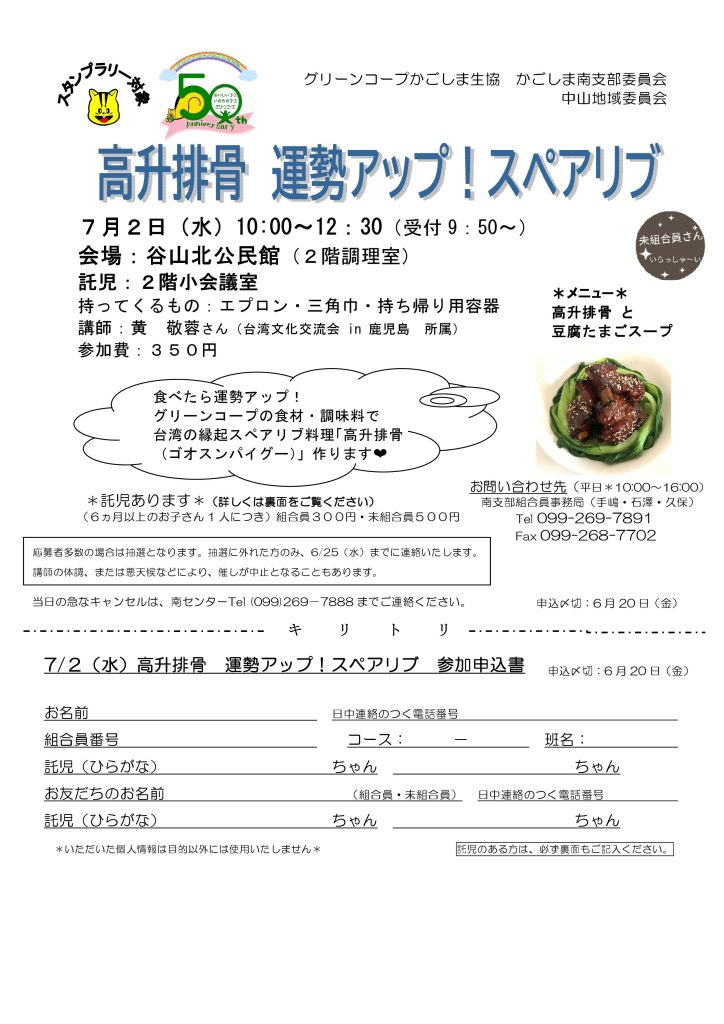 スタンプラリー対象
50th
おいしいコープ
いのちのコープ
グリーンコープ
Anniversary
グリーンコープかごしま生協　かごしま南支部委員会
中山地域委員会
高升排骨　運勢アップ！スペアリブ
７月２日（水）10:00～12：30（受付 9：50～）
会場：谷山北公民館（２階調理室）
託児：２階小会議室
持ってくるもの：エプロン・三角巾・持ち帰り用容器
講師：黄　敬蓉さん（台湾文化交流会 in 鹿児島　所属）
参加費：３５０円
未組合員さん
いらっしゃ～い
＊メニュー＊
高升排骨 と
豆腐たまごスープ
食べたら運勢アップ！
グリーンコープの食材・調味料で
台湾の縁起スペアリブ料理｢高升排骨
（ゴオスンパイグー）｣ 作ります❤
＊託児あります＊（詳しくは裏面をご覧ください）
（６ヵ月以上のお子さん１人につき）組合員３００円・未組合員５００円
お問い合わせ先（平日＊10:00～16:00）
南支部組合員事務局（手嶋・石澤・久保）
Tel 099-269-7891
Fax 099-268-7702
応募者多数の場合は抽選となります。抽選に外れた方のみ、6/25（水）までに連絡いたします。
講師の体調、または悪天候などにより、催しが中止となることもあります。
当日の急なキャンセルは、南センターTel (099)269－7888 までご連絡ください。
申込〆切：６月２０日（金）
キ　リ　ト　リ
7/２（水）高升排骨　運勢アップ！スペアリブ　参加申込書
申込〆切：６月２０日（金）
お名前　日中連絡のつく電話番号
組合員番号　コース：　－　班名：
託児（ひらがな）　ちゃん　ちゃん
お友だちのお名前　（組合員・未組合員）　日中連絡のつく電話番号
託児（ひらがな）　ちゃん　ちゃん
＊いただいた個人情報は目的以外には使用いたしません＊
託児のある方は、必ず裏面もご記入ください。